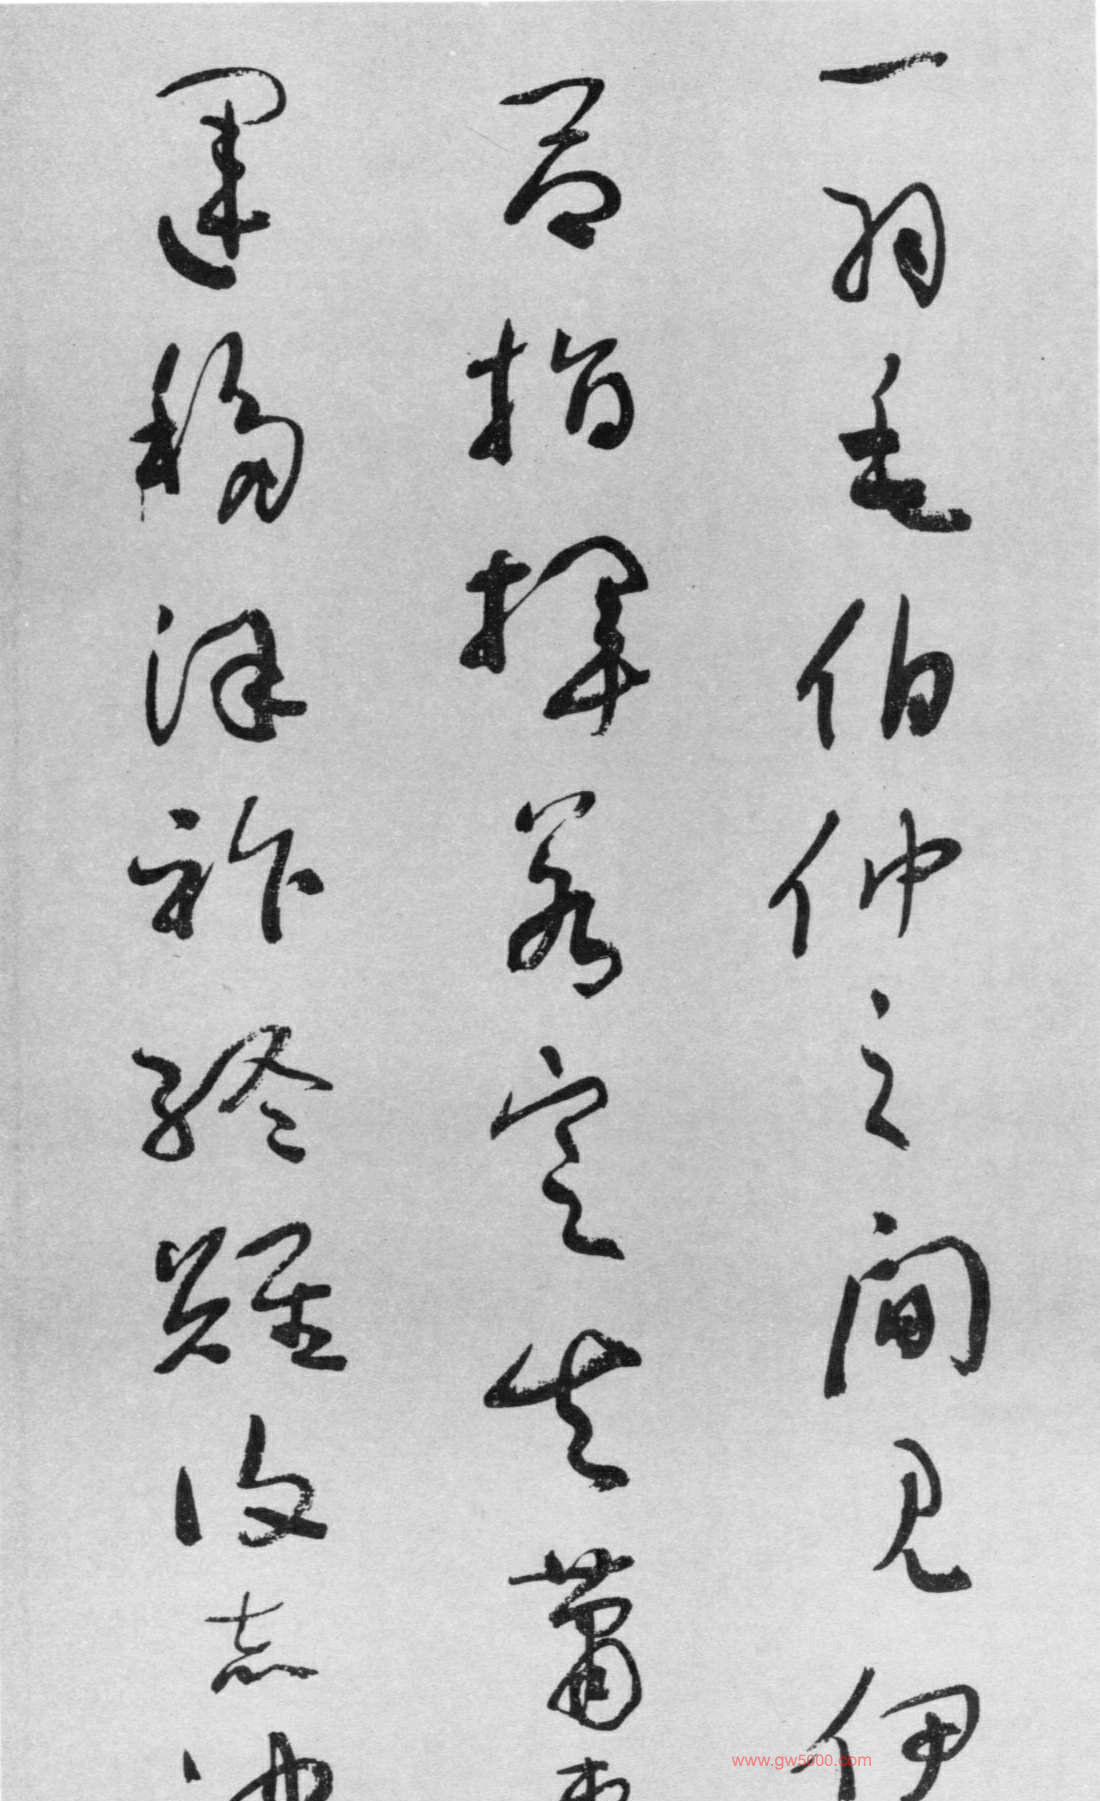 一羽毛伯仲之間見伊
呂指揮若定失蕭
運移漢祚終難復志決
www.gw5000.com